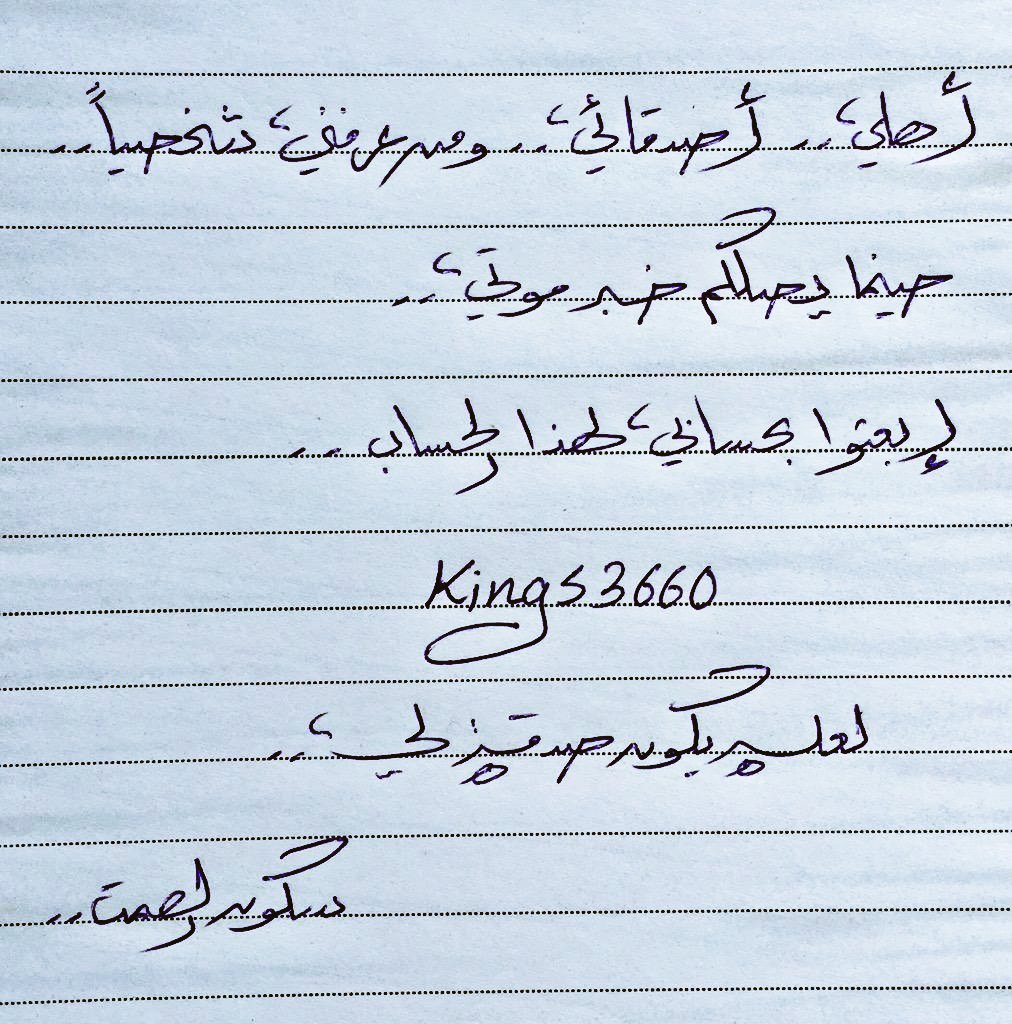 أهلي .. أصدقائي .. ومن عرفني شخصياً ..
حينما يصلكم خبر موتي ..
إبعثوا بحسابي لهذا الحساب ..
Kings3660
لعله يكون صدقة لي ..
سكون الصمت ..